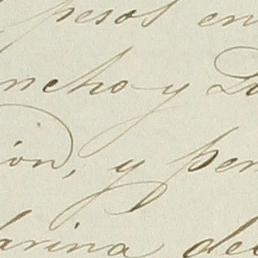 pesos en
ncho y
ión, y per
arina de